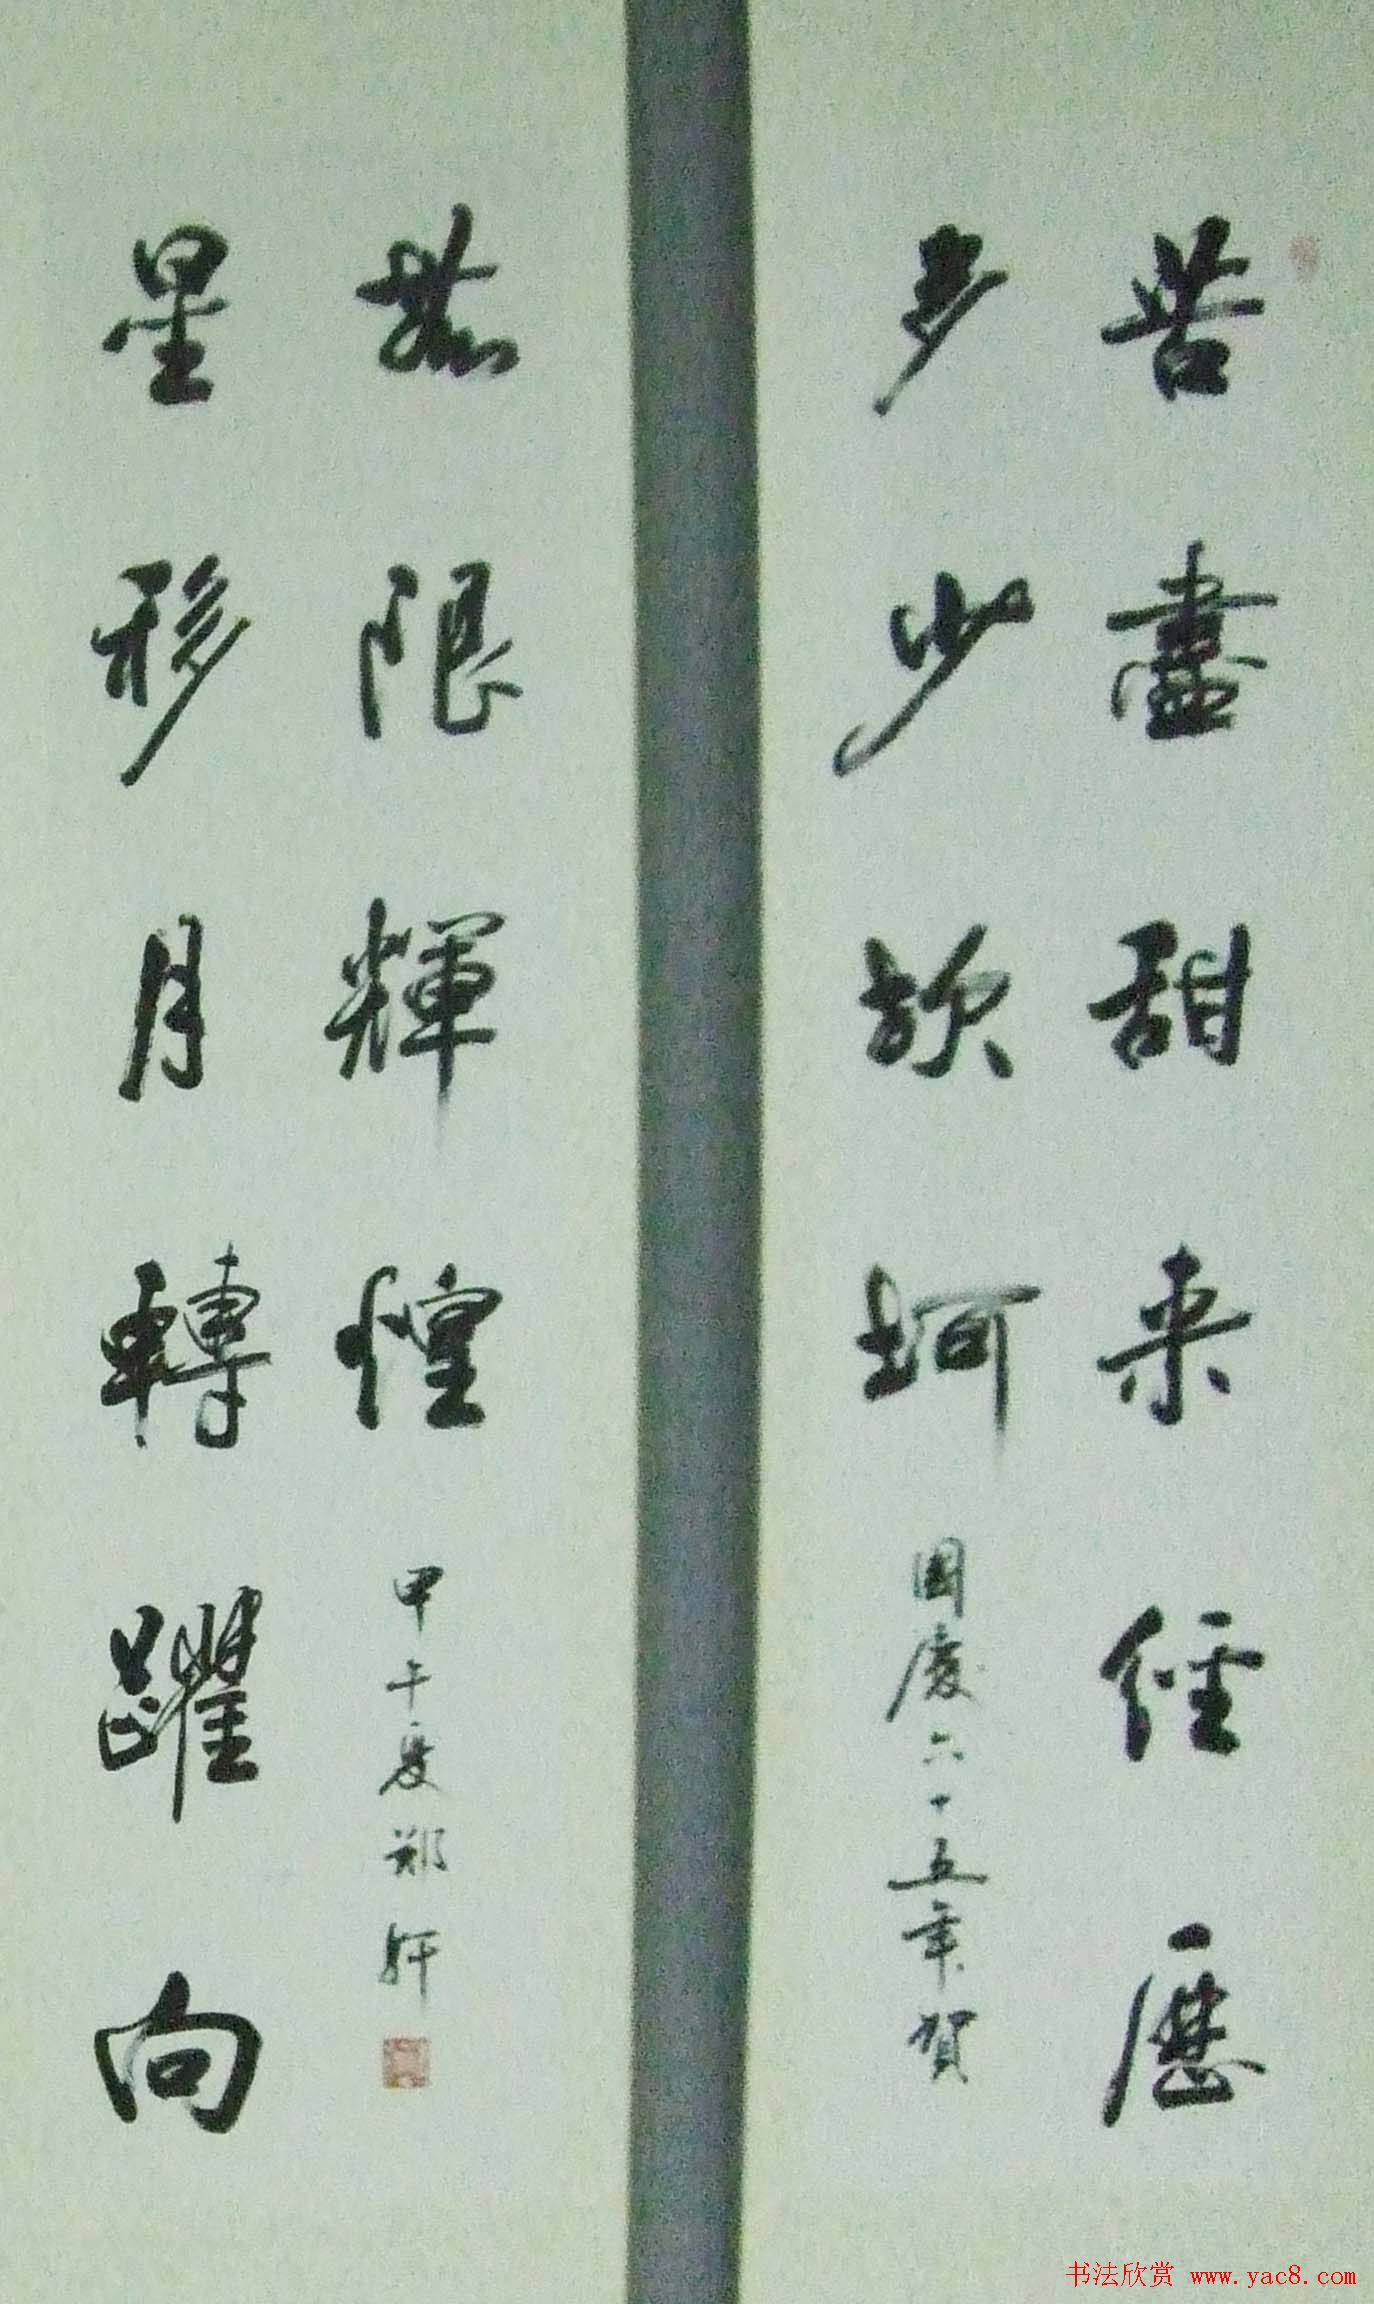 苦盡甜来經歷
多少坎坷
國慶六十五年賀
星移月轉躍向
無限輝煌
甲午夏郑轩
书法欣赏 www.yac8.com